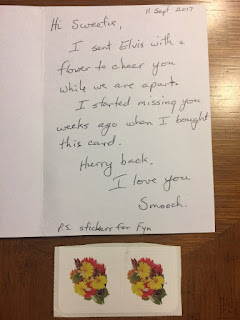 11 Sept 2017
Hi Sweetie,
I sent Elvis with a
flower to cheer you
while we are apart.
I started missing you
weeks ago when I bought
this card.
Hurry back.
I love you
Smooch.
P.S. stickers for Fyn